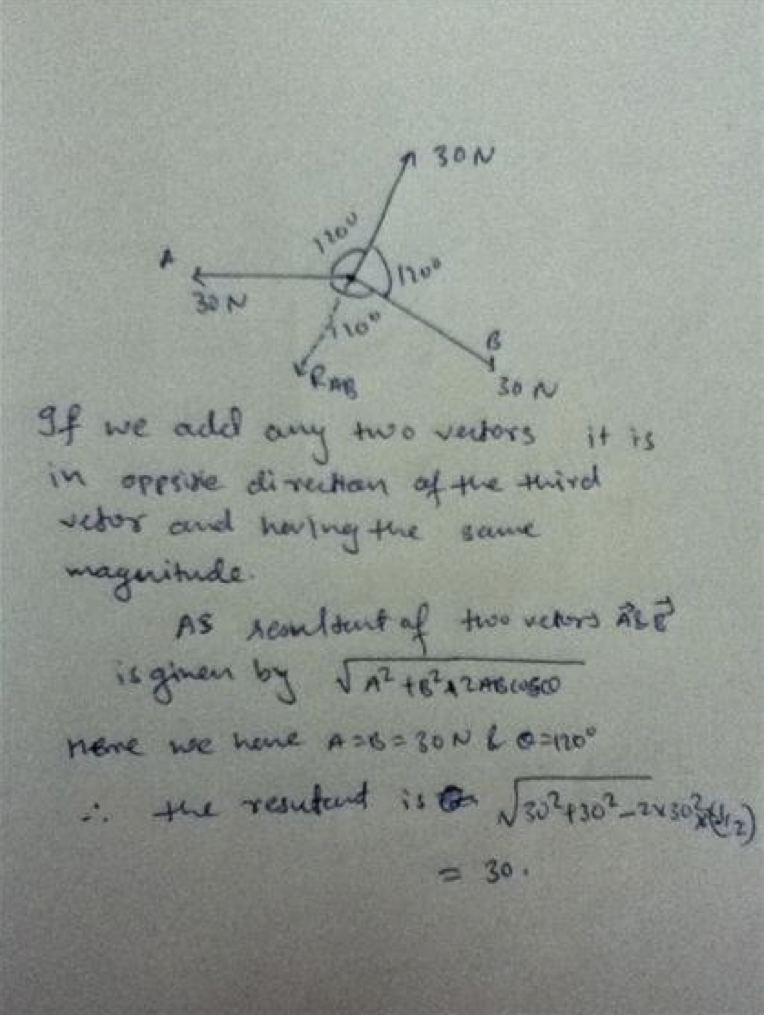 30N
120°
120°
A
30N
120°
B
R_AB
30N
If we add any two vectors it is
in oppsite direction of the third
vector and having the same
magnitude.
As resultant of two vectors A⃗ & B⃗
is given by √A²+B²+2ABcosθ
Here we have A=B=30N & θ=120°
∴ the resultant is √30²+30²-2×30²×(1/2)
= 30.